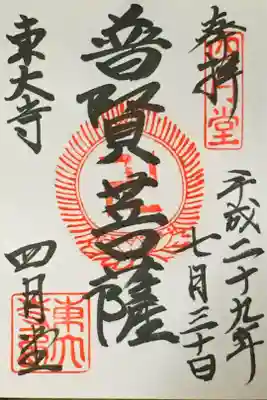 奉拝
四月堂
平成二十九年
七月三十日
普賢菩薩
東大寺
四月堂
東大